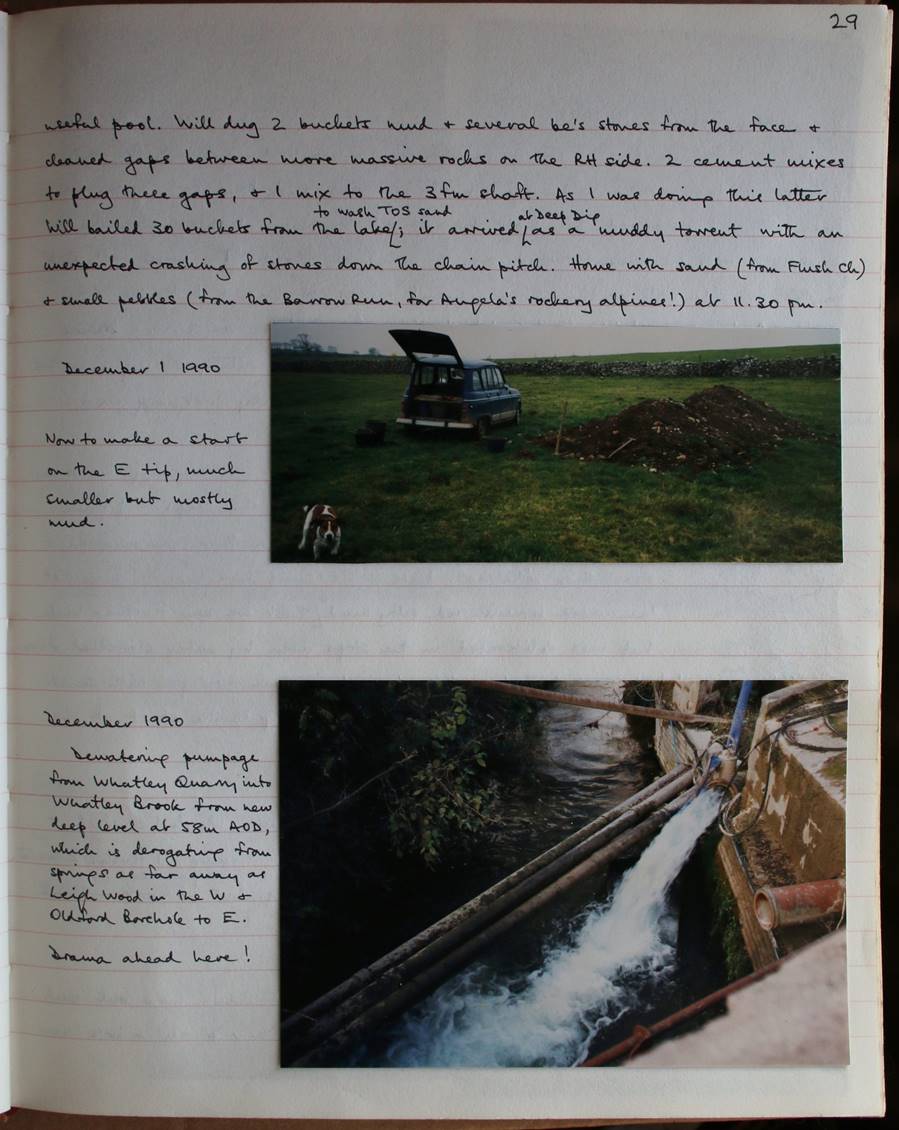 29
useful pool. Will dug 2 buckets mud + several be's stones from the face +
cleaned gaps between more massive rocks on the RH side. 2 cement mixes
to plug these gaps, & 1 mix to the 3fm shaft. As I was doing this latter
to wash TOS sand at Deep Dig
Will bailed 30 buckets from the lake; it arrived as a muddy torrent with an
unexpected crashing of stones down the chain pitch. Home with sand (from Flush Ch)
& small pebbles (from the Barrow Run, for Angela's rockery alpines!) at 11.30 pm.
December 1 1990
Now to make a start
on the E tip, much
smaller but mostly
mud.
December 1990
Dewatering pumpage
from Whatley Quarry into
Whatley Brook from new
deep level at 58m AOD,
which is derogating from
springs as far away as
Leigh Wood in the W &
Oldford Borehole to E.
Drama ahead here!